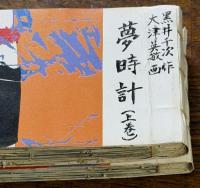 黒井千次 作
大津英敏 画
夢時計
(上巻)